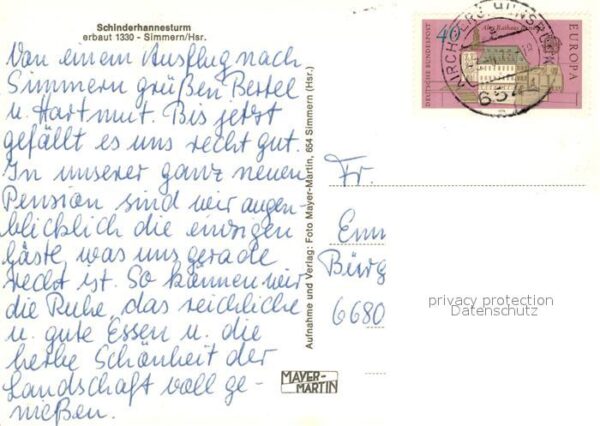 Schinderhannesturm
erbaut 1330 - Simmern/Hsr.
Von einem Ausflug nach
Simmern grüßen Bertel
u. Hartmut. Bis jetzt
gefällt es uns recht gut.
In unserer ganz neuen
Pension sind wir augen-
blicklich die einzigen
Gäste, was uns gerade
recht ist. So können wir
die Ruhe, das reichliche
u. gute Essen u. die
herbe Schönheit der
Landschaft voll ge-
nießen.
Aufnahme und Verlag: Foto Mayer-Martin, 654 Simmern (Hsr.)
MAYER-
MARTIN
DEUTSCHE BUNDESPOST
40
Altes Rathaus
EUROPA
KIRCHBERG HUNSRÜCK
654
Fr.
Emm
Bürg
6680
privacy protection
Datenschutz